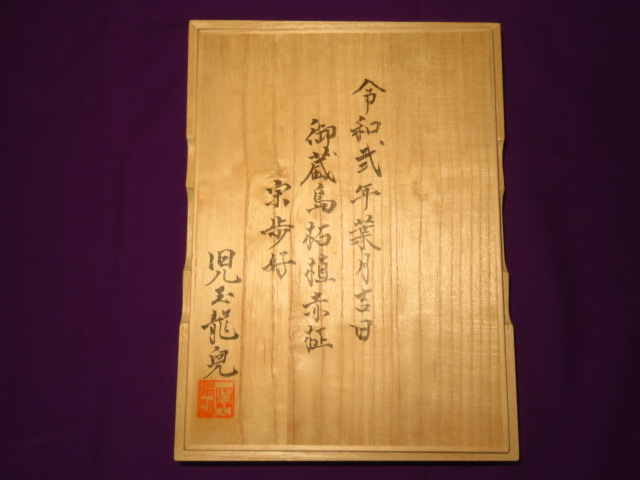 令和弐年葉月吉日
御蔵島柘植赤柾
宗歩好
児玉龍兒